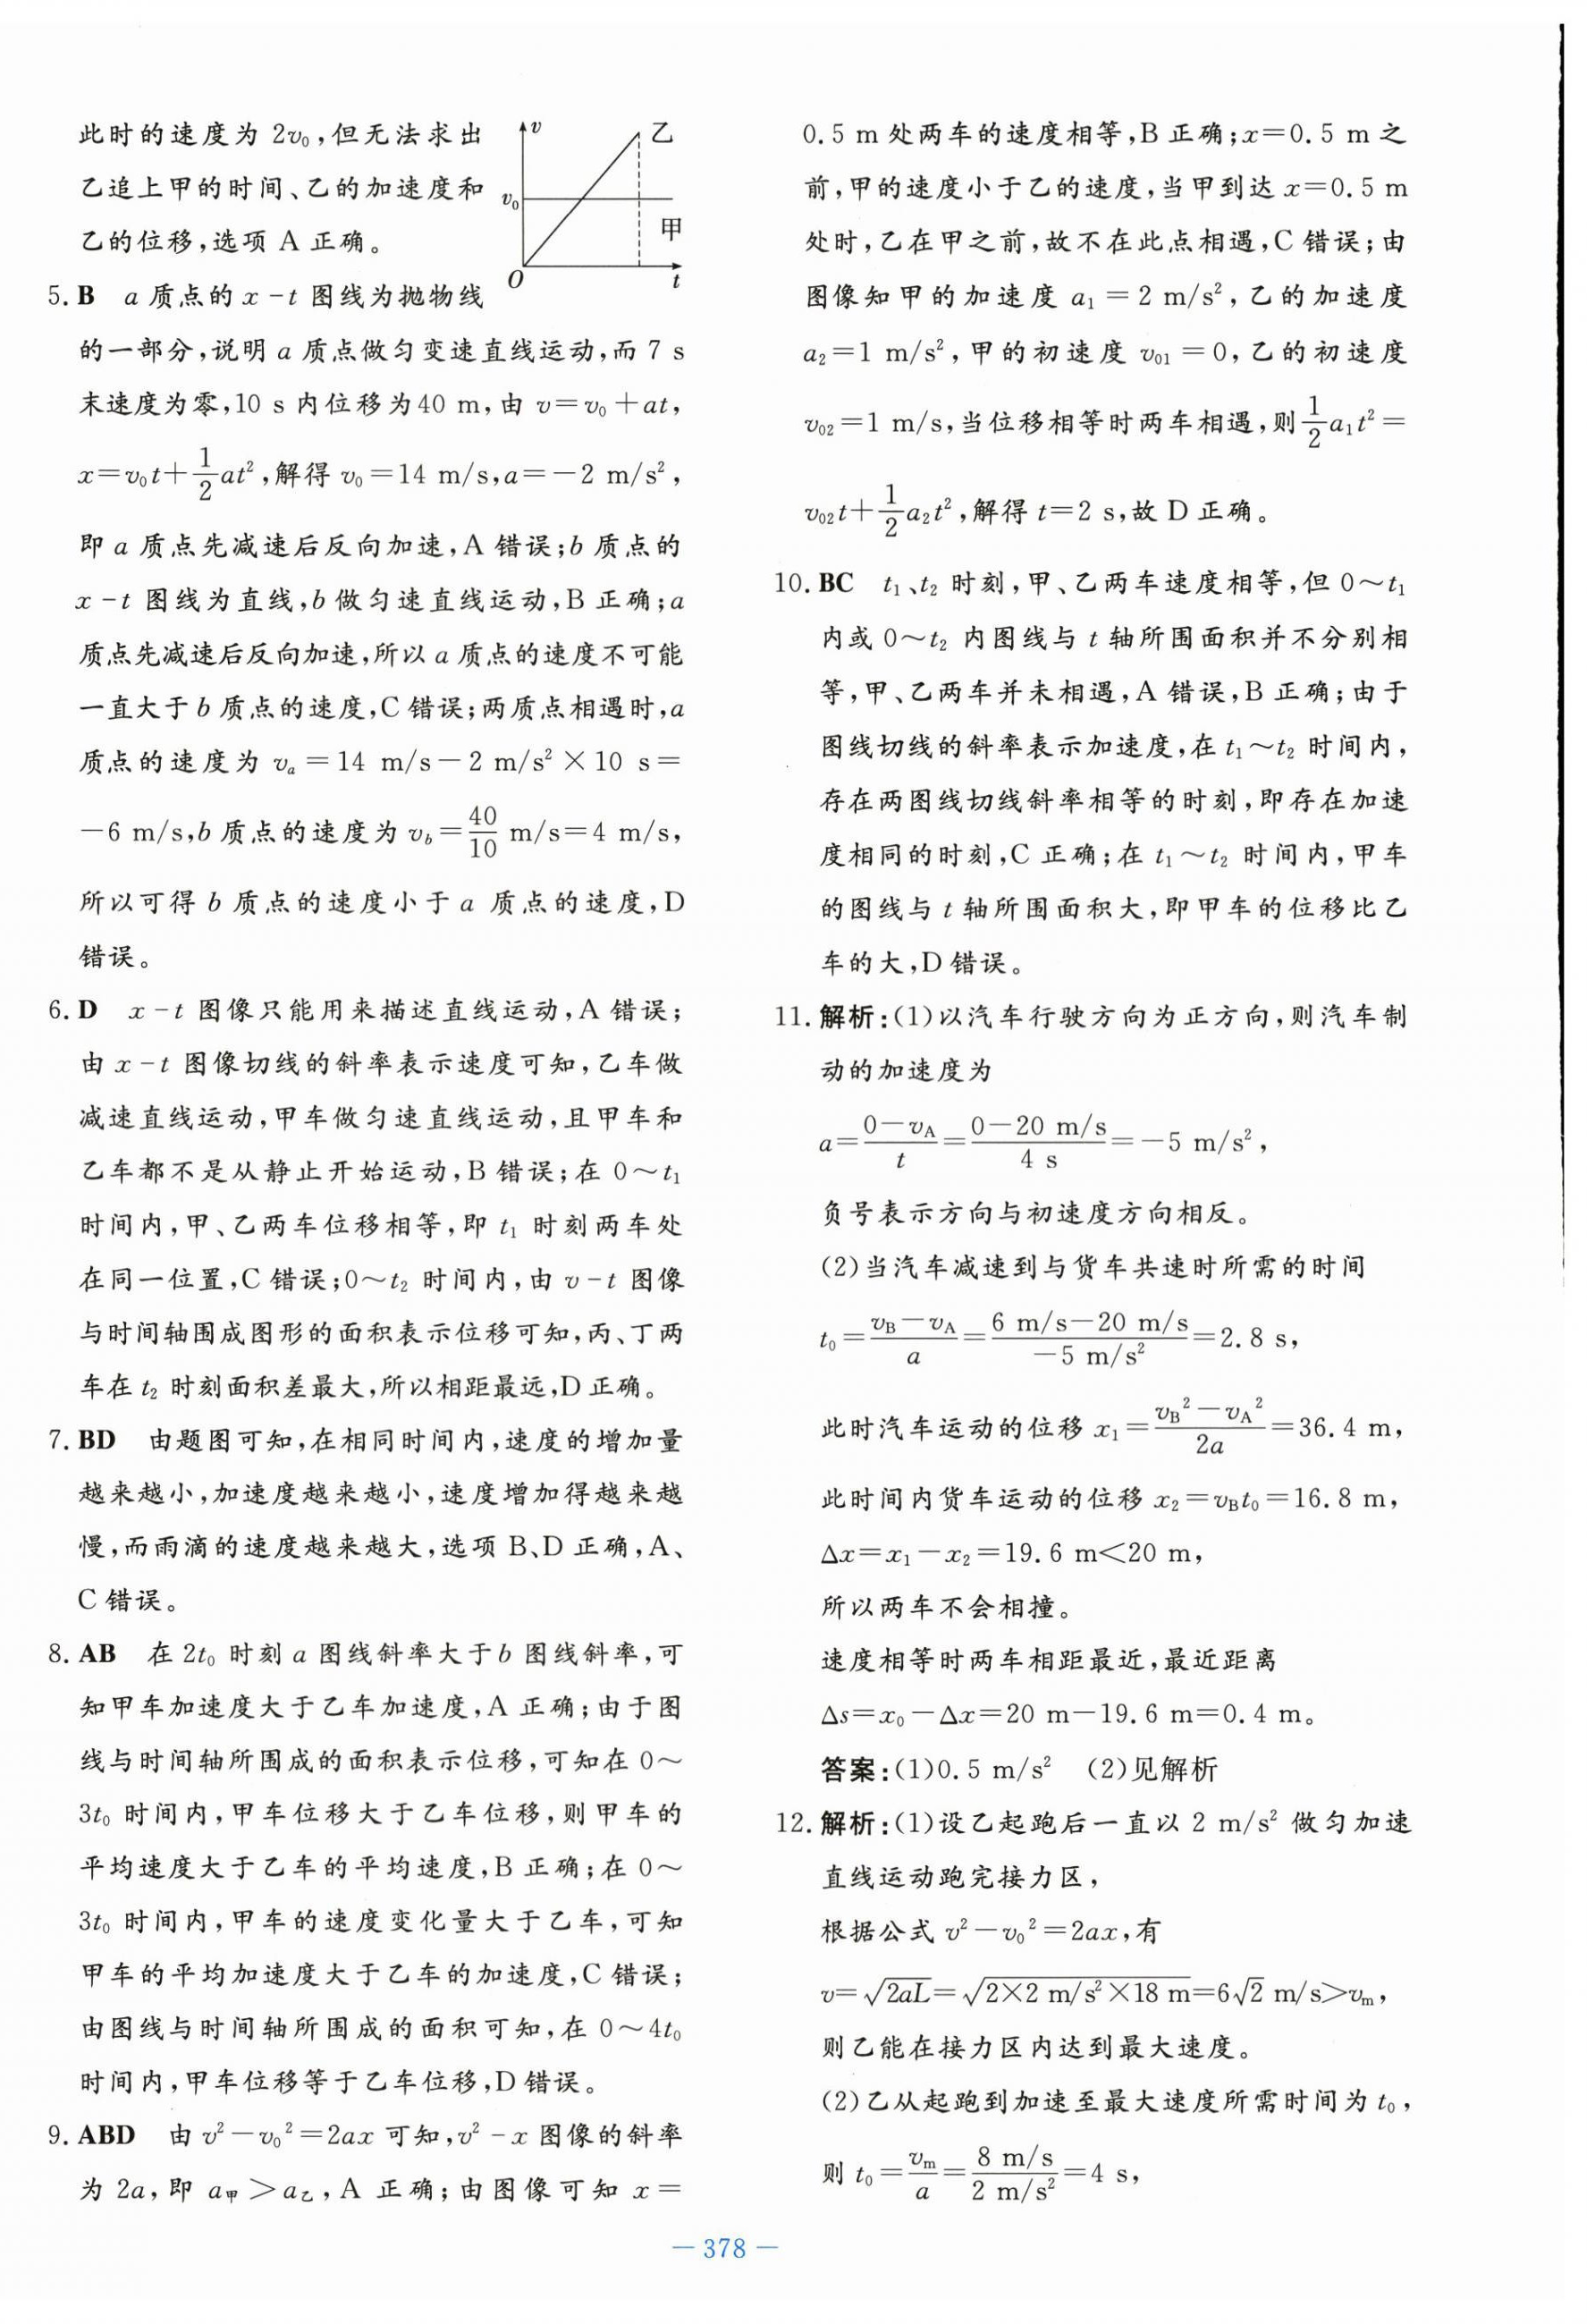 此时的速度为 2v₀,但无法求出
乙追上甲的时间、乙的加速度和
乙的位移,选项 A 正确。
v
乙
v₀
甲
O
t
5. B a 质点的 x-t 图线为抛物线
的一部分,说明 a 质点做匀变速直线运动,而 7 s
末速度为零,10 s 内位移为40 m,由 v=v₀+at,
x=v₀t+1/2at²,解得 v₀=14 m/s,a=-2 m/s²,
即 a 质点先减速后反向加速,A 错误;b 质点的
x-t 图线为直线,b 做匀速直线运动,B 正确;a
质点先减速后反向加速,所以 a 质点的速度不可能
一直大于 b 质点的速度,C 错误;两质点相遇时,a
质点的速度为 vₐ=14 m/s-2 m/s²×10 s=
-6 m/s,b 质点的速度为 v_b=40/10 m/s=4 m/s,
所以可得 b 质点的速度小于 a 质点的速度,D
错误。
6. D x-t 图像只能用来描述直线运动,A 错误;
由 x-t 图像切线的斜率表示速度可知,乙车做
减速直线运动,甲车做匀速直线运动,且甲车和
乙车都不是从静止开始运动,B 错误;在 0～t₁
时间内,甲、乙两车位移相等,即 t₁ 时刻两车处
在同一位置,C 错误;0～t₂ 时间内,由 v-t 图像
与时间轴围成图形的面积表示位移可知,丙、丁两
车在 t₂ 时刻面积差最大,所以相距最远,D 正确。
7. BD 由题图可知,在相同时间内,速度的增加量
越来越小,加速度越来越小,速度增加得越来越
慢,而雨滴的速度越来越大,选项 B、D 正确,A、
C 错误。
8. AB 在 2t₀ 时刻 a 图线斜率大于b 图线斜率,可
知甲车加速度大于乙车加速度,A 正确;由于图
线与时间轴所围成的面积表示位移,可知在 0～
3t₀ 时间内,甲车位移大于乙车位移,则甲车的
平均速度大于乙车的平均速度,B 正确;在 0～
3t₀ 时间内,甲车的速度变化量大于乙车,可知
甲车的平均加速度大于乙车的加速度,C 错误;
由图线与时间轴所围成的面积可知,在 0～4t₀
时间内,甲车位移等于乙车位移,D 错误。
9. ABD 由 v²-v₀²=2ax 可知,v²-x 图像的斜率
为 2a,即 a甲>a乙,A 正确;由图像可知 x=
0.5 m 处两车的速度相等,B 正确;x=0.5 m 之
前,甲的速度小于乙的速度,当甲到达 x=0.5 m
处时,乙在甲之前,故不在此点相遇,C 错误;由
图像知甲的加速度 a₁=2 m/s²,乙的加速度
a₂=1 m/s²,甲的初速度 v₀₁=0,乙的初速度
v₀₂=1 m/s,当位移相等时两车相遇,则1/2a₁t²=
v₀₂t+1/2a₂t²,解得 t=2 s,故 D 正确。
10. BC t₁、t₂ 时刻,甲、乙两车速度相等,但 0～t₁
内或 0～t₂ 内图线与 t 轴所围面积并不分别相
等,甲、乙两车并未相遇,A 错误,B 正确;由于
图线切线的斜率表示加速度,在 t₁～t₂ 时间内,
存在两图线切线斜率相等的时刻,即存在加速
度相同的时刻,C 正确;在 t₁～t₂ 时间内,甲车
的图线与 t 轴所围面积大,即甲车的位移比乙
车的大,D 错误。
11. 解析:(1)以汽车行驶方向为正方向,则汽车制
动的加速度为
a=(0-v_A)/t=(0-20 m/s)/(4 s)=-5 m/s²,
负号表示方向与初速度方向相反。
(2)当汽车减速到与货车共速时所需的时间
t₀=(v_B-v_A)/a=(6 m/s-20 m/s)/(-5 m/s²)=2.8 s,
此时汽车运动的位移 x₁=(v_B²-v_A²)/(2a)=36.4 m,
此时间内货车运动的位移 x₂=v_Bt₀=16.8 m,
Δx=x₁-x₂=19.6 m<20 m,
所以两车不会相撞。
速度相等时两车相距最近,最近距离
Δs=x₀-Δx=20 m-19.6 m=0.4 m。
答案:(1)0.5 m/s² (2)见解析
12. 解析:(1)设乙起跑后一直以 2 m/s² 做匀加速
直线运动跑完接力区,
根据公式 v²-v₀²=2ax,有
v=√(2aL)=√(2×2 m/s²×18 m)=6√2 m/s>v_m,
则乙能在接力区内达到最大速度。
(2)乙从起跑到加速至最大速度所需时间为 t₀,
则 t₀=v_m/a=(8 m/s)/(2 m/s²)=4 s,
— 378 —